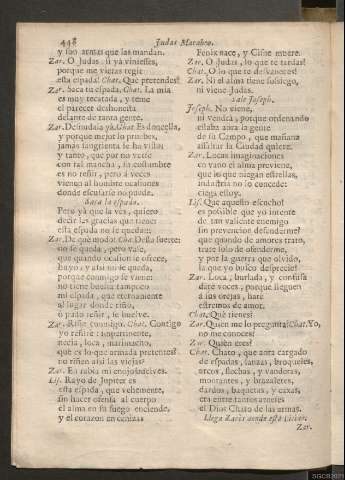 448 Judas Macabeo.
y son armas que las mandan.
Zar. O Judas, si yà viniesses,
porque me vieras regir
esta espada! Chat. Que pretendes?
Zar. Saca tu espada. Chat. La mia
es muy recatada, y teme
el parecer deshonesta
delante de tanta gente.
Zar. Desnudala yà. Chat. Es doncella,
y porque mejor lo pruebes,
jamàs sangrienta se ha visto;
y tanto, que por no verse
con tal mancha, su costumbre
es no reñir, pero à veces
viendo al hombre ocasiones
donde escusarle no puede.
Saca la espada.
Pero yà que la vès, quiero
decir las gracias que tienes
esta espada no se queda:
Zar. De què modo? Chat. Desta suerte:
no se queda, pero vale,
que quando ocasion se ofrece,
huyo, y assi no se queda,
porque conmigo se viene:
no tiene buelta tampoco
mi espada, que eternamente
al lugar donde riño,
ò pudo reñir, se buelve.
Zar. Riñe conmigo. Chat. Contigo
yo reñire? impertinente,
necia, loca, marimacho,
què es lo que armada pretendes?
no riñen assi las viejas?
Zar. En rabia mi enojo se ceba.
Lis. Rayo de Jupiter es
esta espada, que vehemente,
sin hacer ofensa al cuerpo
el alma en su fuego enciende,
y el corazon en cenizas
Fenix nace, y Cisne muere.
Zar. O Judas, lo que te tardas!
Chat. O lo que te desvaneces!
Zar. Ni el alma tiene sossiego,
ni viene Judas.
Sale Joseph.
Joseph. No viene,
ni vendrà, porque ordenando
estaba aora la gente
de su Campo, que mañana
assaltar la Ciudad quiere.
Zar. Locas imaginaciones
en vano el alma previene,
que los que niegan estrellas,
industria no lo concede:
ciega estoy.
Lis. Que aquesto escucho!
es possible que yo intente
de tan valiente enemigo
sin prevencion defenderme?
que quando de amores trato,
trate solo de ofenderme,
y por la guerra que olvido,
la que yo busco desprecie!
Zar. Loca, burlada, y confusa
darè voces, porque lleguen
à sus orejas, harè
estremos de amor.
Chat. Què tienes?
Zar. Quien me lo pregunta? Chat. Yo,
no me conoces?
Zar. Quièn eres?
Chat. Chato, que anda cargado
de espadas, lanzas, broqueles,
arcos, flechas, y vanderas,
montantes, y brazaletes,
dardos, baquetas, y caxas,
era entre tantos arneses
el Dios Chato de las armas.
Llega Zarès donde està Lisias.
Zar.